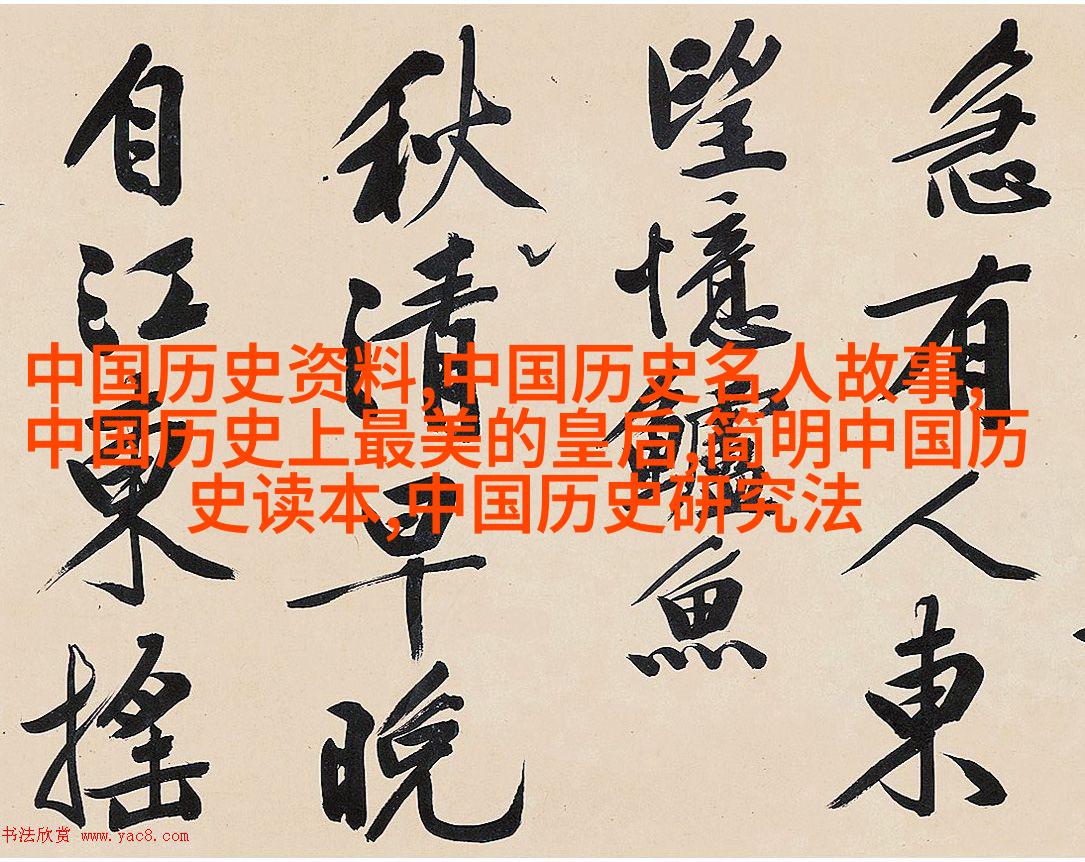 急有人東
望憶鱸魚
秋清早晚
自江東搖
中国历史资料,中国历史名人故事,
中国历史上最美的皇后,简明中国历
史读本,中国历史研究法
书法欣赏 www.yac8.com